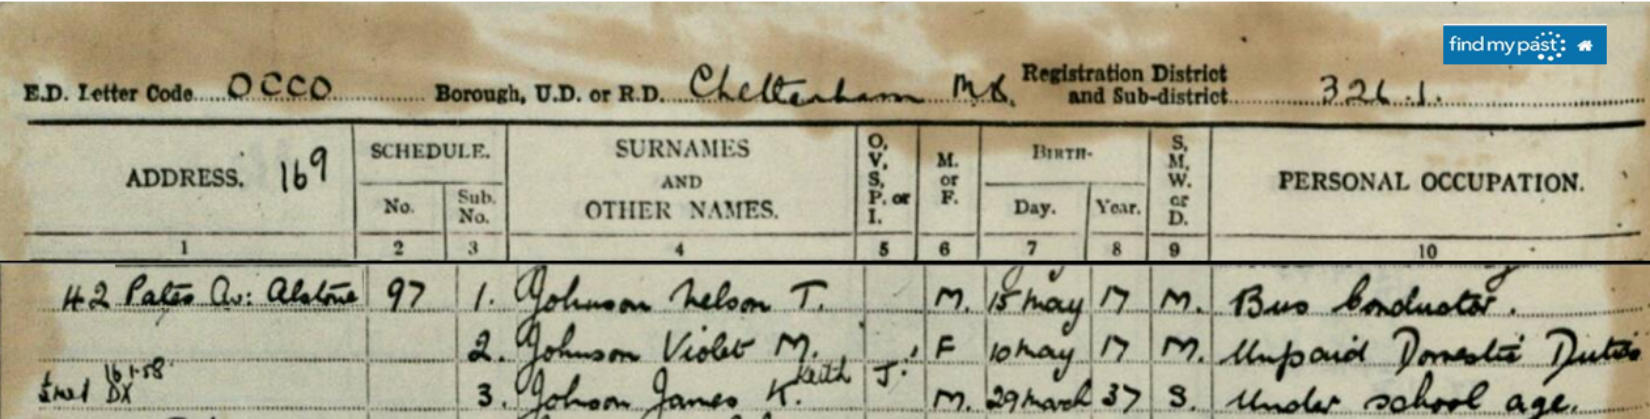 findmypast
E.D. Letter Code OCCO Borough, U.D. or R.D. Cheltenham M.B. Registration District and Sub-district 326.1.
ADDRESS. 169 SCHEDULE. No. Sub. No. SURNAMES AND OTHER NAMES. O, V, S, P. or I. M. or F. BIRTH- Day. Year. S, M, W. or D. PERSONAL OCCUPATION.
1 2 3 4 5 6 7 8 9 10
42 Pates Av: Alstone 97 1. Johnson Nelson T. M. 15 May 17 M. Bus Conductor.
2. Johnson Violet M. F 10 May 17 M. Unpaid Domestic Duties
16 1.58 Keith J.
DX 3. Johnson James K. M. 29 March 37 S. Under school age.